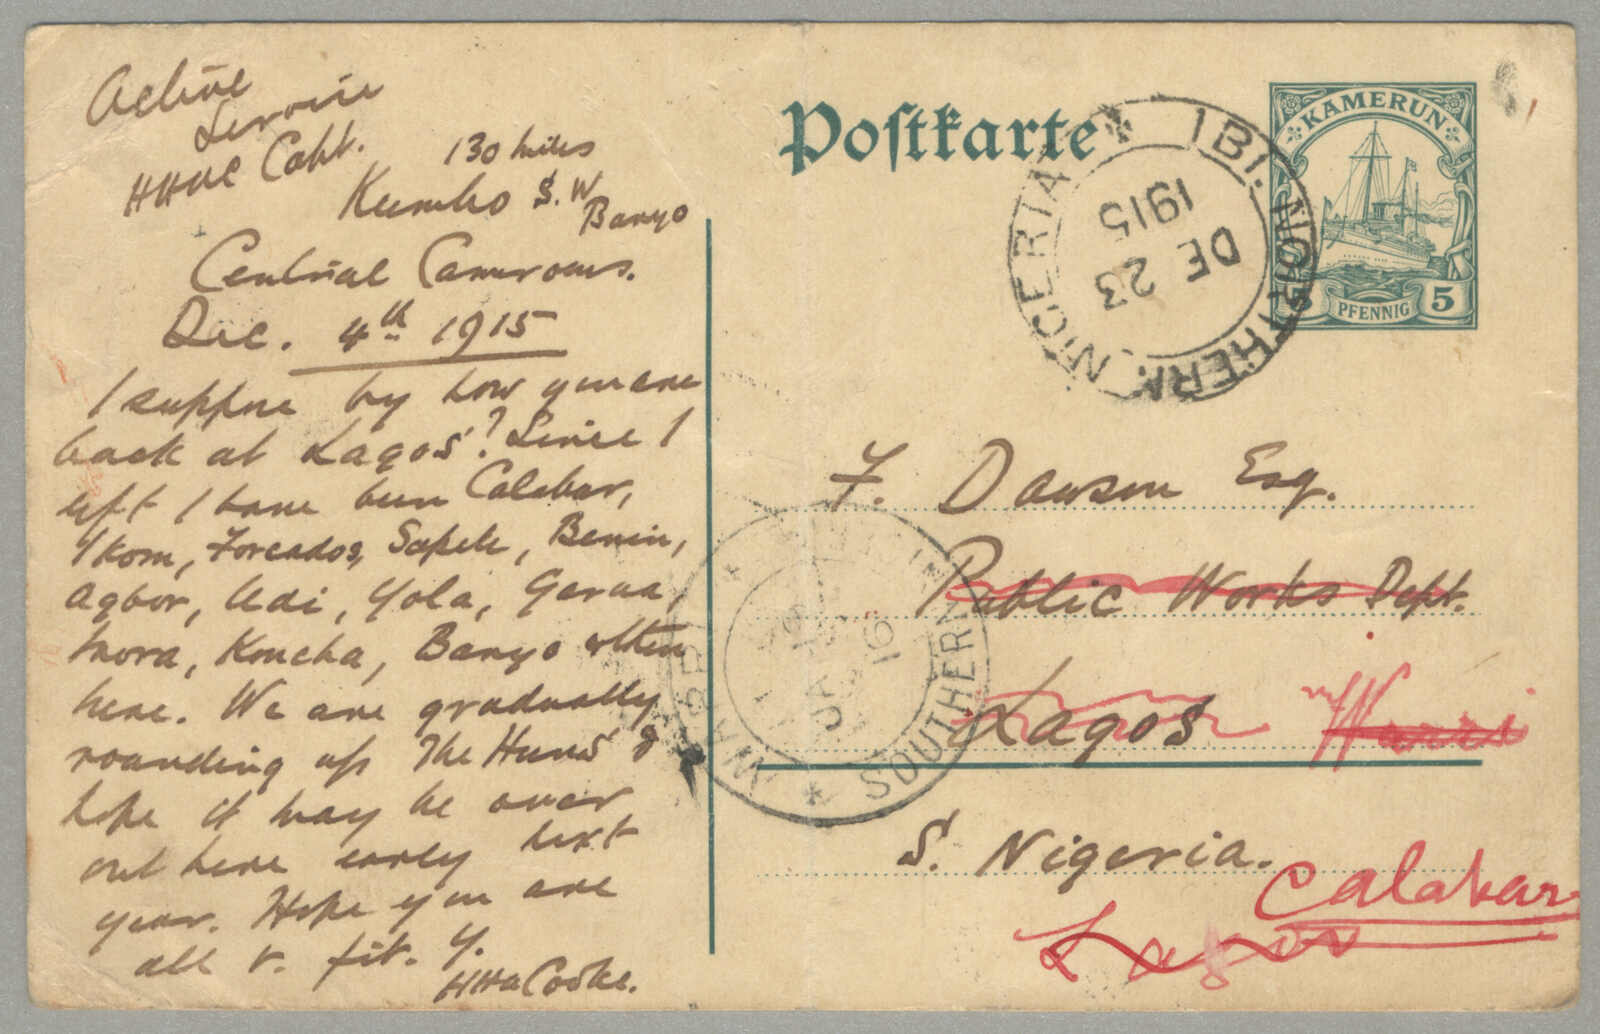 Active
Service
HHAC Capt.
130 miles
Kumbo S.W
Banyo
Central Cameroons.
Dec. 4th 1915
I suppose by now you are
back at Lagos? Since I
left I have been Calabar,
Ikom, Forcados, Sapele, Benin,
Agbor, Udi, Yola, Garua,
Mora, Koncha, Banyo & then
here. We are gradually
rounding up the Huns &
hope it may be over
out here early next
year. Hope you are
all v. fit. Y.
HHACooke.
Postkarte
KAMERUN
5 PFENNIG 5
IBI. NORTHERN NIGERIA
DE 23
1915
F. Dawson Esq.
Public Works Dept.
Lagos Warri
S. Nigeria.
Calabar
Lagos
WARRI SOUTHERN
JA
16